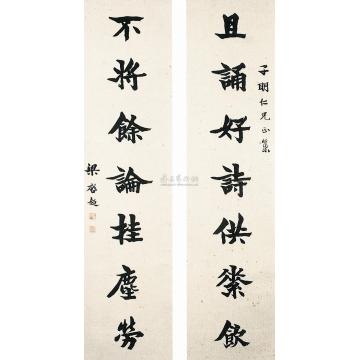 且誦好詩供粲飲
子明仁兄正篆
不將餘論挂塵勞
梁啟超